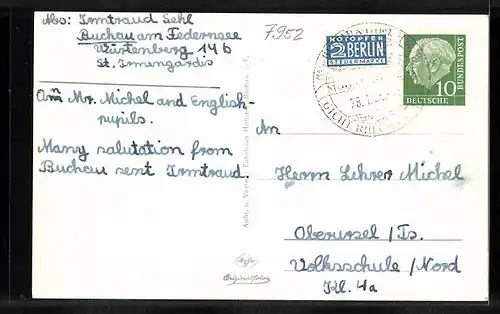 Abs: Irmtraud Sehl
Buchau am Federnsee
Würtenberg 146
St. Irmengardis
7952
NOTOPFER
2 BERLIN
STEUERMARKE
DEUTSCHE
BUNDESPOST
10
Am Mr. Michel and English-
pupils.
Many salutation from
Buchau sent Irmtraud.
An
Herrn Lehrer Michel
Oberursel / Ts.
Volksschule / Nord
Kl. 4a
Originalfoto